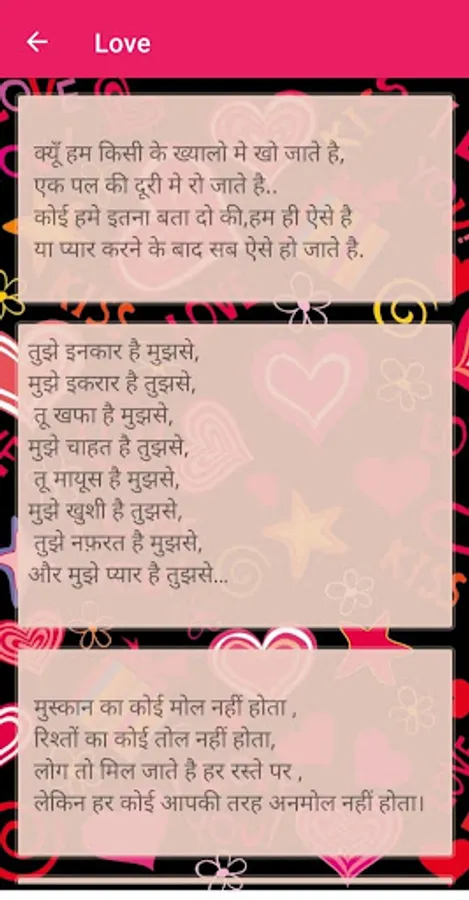 Love
क्यूँ हम किसी के ख्यालो मे खो जाते है,
एक पल की दूरी मे रो जाते है..
कोई हमे इतना बता दो की,हम ही ऐसे है
या प्यार करने के बाद सब ऐसे हो जाते है.
तुझे इनकार है मुझसे,
मुझे इकरार है तुझसे,
तू खफा है मुझसे,
मुझे चाहत है तुझसे,
तू मायूस है मुझसे,
मुझे खुशी है तुझसे,
तुझे नफ़रत है मुझसे,
और मुझे प्यार है तुझसे...
मुस्कान का कोई मोल नहीं होता ,
रिश्तों का कोई तोल नहीं होता,
लोग तो मिल जाते है हर रस्ते पर ,
लेकिन हर कोई आपकी तरह अनमोल नहीं होता।